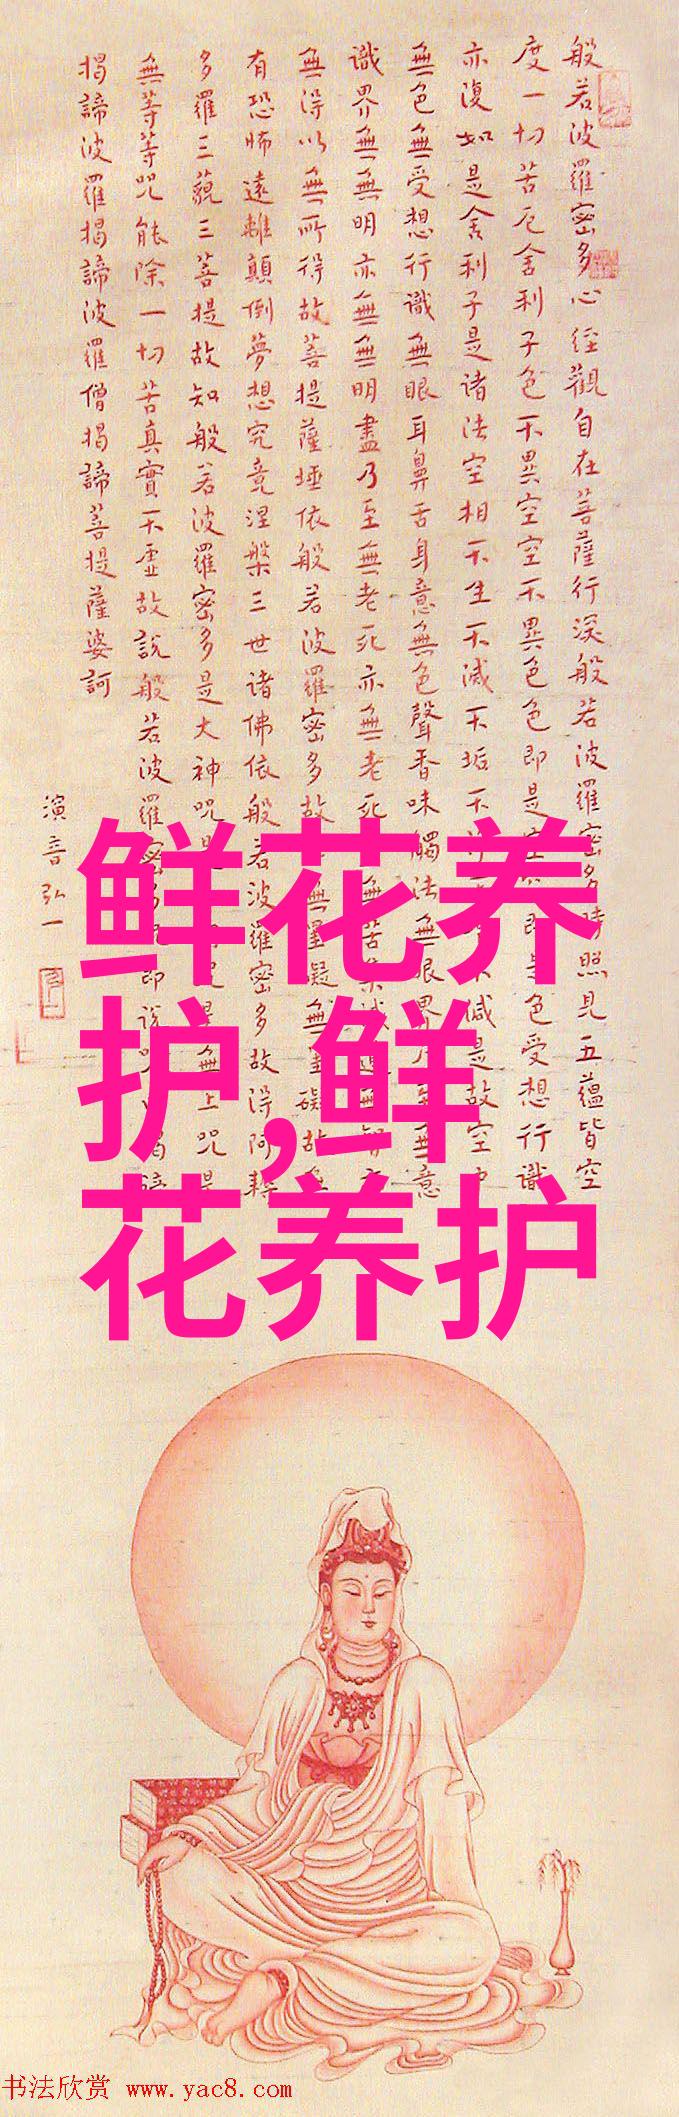 般若波羅密多心经觀自在菩薩行深般若波羅密多時照見五蘊皆空
度一切苦厄舍利子色不異空空不異色色即是空即是色受想行識
亦復如是舍利子是诸法空相不生不滅不垢不減是故空中
無色無受想行識無眼耳鼻舌身意無色聲香味觸法無眼界至無意
識界無無明亦無無明盡乃至無老死亦無老死無苦集滅道無智亦
無得以無所得故菩提薩埵依般若波羅密多故無罣礙無罣礙故無
有恐怖遠離顛倒夢想究竟涅槃三世诸佛依般若波羅密多故得阿耨
多羅三藐三菩提故知般若波羅密多是大神咒是咒是無上咒是
無等等咒能除一切苦真實不虚故說般若波羅密多咒即說咒曰揭諦
揭諦波羅揭諦波羅僧揭諦菩提薩婆訶
演音弘一
鲜花养
护,鲜
花养护
书法欣赏 www.yac8.com